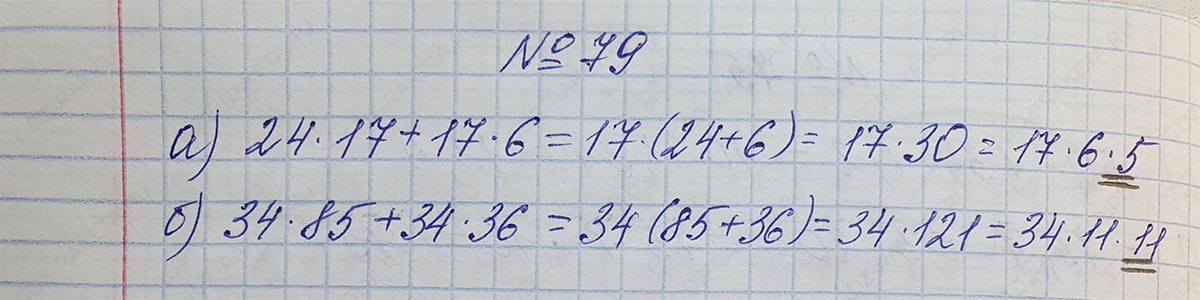 № 79
а) 24·17+17·6=17·(24+6)=17·30=17·6·5
б) 34·85+34·36=34(85+36)=34·121=34·11·11